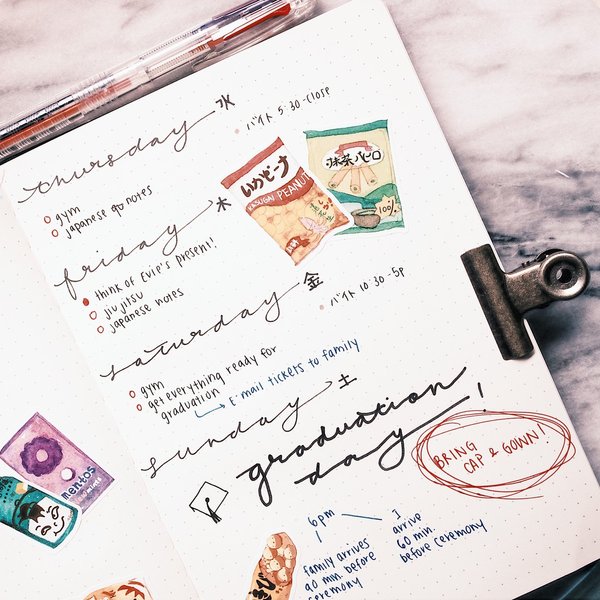 thursday 水
バイト 5:30-close
gym
japanese notes
いかピーナ
KASUGAI PEANUT
抹茶パピロ
100%
friday 木
think of Evie's present!
jiu jitsu
japanese notes
saturday 金
バイト 10:30-5p
gym
get everything ready for
graduation
E-mail tickets to family
sunday 土
graduation
day!
BRING
CAP & GOWN!
mentos
6pm
family arrives
90 min. before
ceremony
I
arrive
60 min.
before ceremony